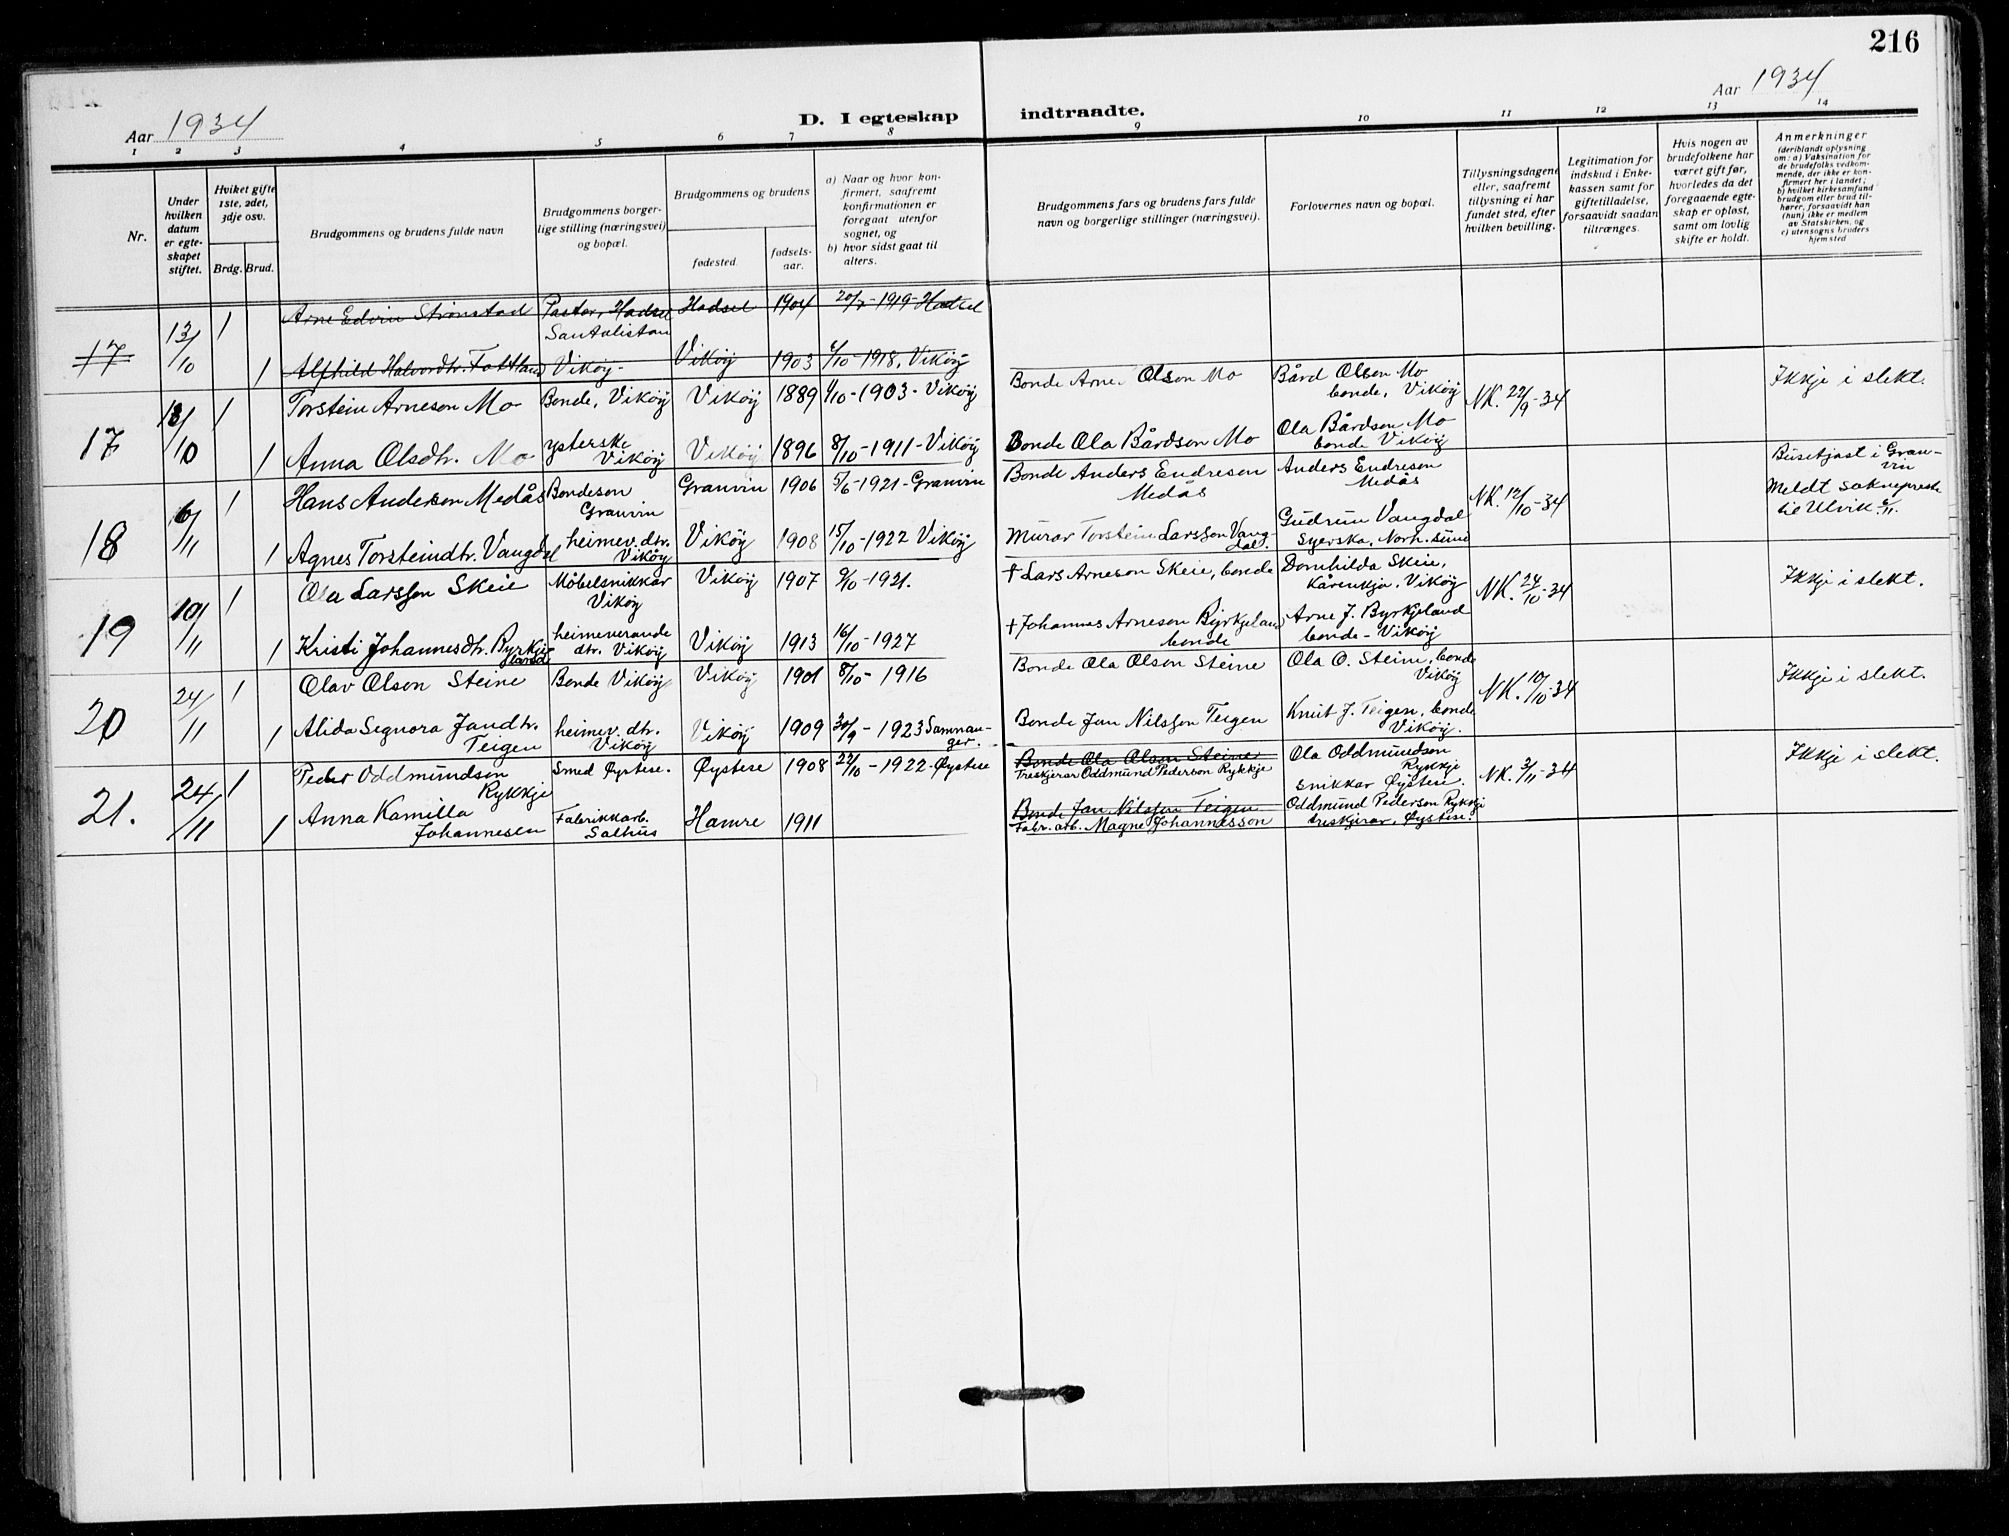 216
Aar 1934
D. I egteskap indtraadte.
Aar 1934
1 2 3 4 5 6 7 8 9 10 11 12 13 14
Nr.
Under
hvilken
datum
er egte-
skapet
stiftet.
Hviket gifte
1ste, 2det,
3dje osv.
Brdg. Brud.
Brudgommens og brudens fulde navn
Brudgommens borger-
lige stilling (næringsvei)
og bopæl.
Brudgommens og brudens
fødested.
fødsels-
aar.
a) Naar og hvor kon-
firmert, saafremt
konfirmationen er
foregaat utenfor
sognet, og
b) hvor sidst gaat til
alters.
Brudgommens fars og brudens fars fulde
navn og borgerlige stillinger (næringsvei).
Forlovernes navn og bopæl.
Tillysningsdagene
eller, saafremt
tillysning ei har
fundet sted, efter
hvilken bevilling.
Legitimation for
indskud i Enke-
kassen samt for
giftetilladelse,
forsaavidt saadan
tiltrænges.
Hvis nogen av
brudefolkene har
været gift før,
hvorledes da det
foregaaende egte-
skap er opløst,
samt om lovlig
skifte er holdt.
Anmerkninger
(deriblandt oplysning
om: a) Vaksination for
de brudefolks vedkom-
mende, der ikke er kon-
firmert her i landet;
b) hvilket kirkesamfund
brudgom eller brud til-
hører, forsaavidt han
(hun) ikke er medlem
av Statskirken, og
c) utensogns bruders
hjemsted
17 13/10 1 Arne Edvin Strønstad Pastor, Hadsel Hadsel 1904 20/7-1919-Hadsel
Santalistan
1 Alfhild Halvordtr. Fosttland Vikøy- Vikøy 1903 6/10-1918, Vikøy
17 13/10 1 Torstein Arneson Mo Bonde, Vikøy Vikøy 1889 4/10-1903-Vikøy Bonde Arne Olson Mo Bård Olson Mo
bonde, Vikøy NK. 22/9-34 Ikkje i slekt.
1 Anna Olsdtr. Mo ysterske
Vikøy Vikøy 1896 8/10-1911-Vikøy Bonde Ola Bårdson Mo Ola Bårdson Mo
bonde Vikøy
18 6/11 1 Hans Anderson Medås Bondeson
Granvin Granvin 1906 5/6-1921-Granvin Bonde Anders Endreson
Medås Anders Endreson
Medås NK. 12/10-34 Busetjast i Gran-
vin
Meldt soknepreste
til Ulvik 6/11.
1 Agnes Torsteindtr. Vangdal heimev. dtr.
Vikøy Vikøy 1908 15/10-1922 Vikøy Murar Torstein Larsson Vang-
dal. Gudrun Vangdal
Syerska, Norh. sund
19 10/11 1 Ola Larsson Skeie Møbelsnikkar
Vikøy Vikøy 1907 9/10-1921. † Lars Arneson Skeie, bonde Domhilda Skeie,
Kårenkja, Vikøy NK. 24/10-34 Ikkje i slekt.
1 Kristi Johannesdtr. Byrkje-
land heimeverande
dtr. Vikøy Vikøy 1913 16/10-1927 † Johannes Arneson Byrkjeland
bonde Arne J. Byrkjeland
bonde-Vikøy
20 24/11 1 Olav Olson Steine Bonde Vikøy Vikøy 1901 8/10-1916 Bonde Ola Olson Steine Ola O. Steine, bonde
Vikøy NK. 10/10-34 Ikkje i slekt.
1 Alida Segnora Jandtr.
Teigen heimev. dtr.
Vikøy Vikøy 1909 30/9-1923 Samnan-
ger. Bonde Jan Nilsson Teigen Knut J. Teigen, bonde
Vikøy.
21. 24/11 1 Peder Oddmundson
Rykkje Smed Øystese. Øystese 1908 22/10-1922-Øystese Bonde Ola Olson Steine
Treskjerar Oddmund Pederson Rykkje Ola Oddmundson
Rykkje
snikkar Øystese. NK. 3/11-34 Ikkje i slekt.
1 Anna Kamilla
Johannesen Fabrikkarb.
Salhus Hamre 1911 Bonde Jan Nilsson Teigen
Fabr. arb. Magne Johannesson Oddmund Pederson Rykkje
treskjerar, Øystese.